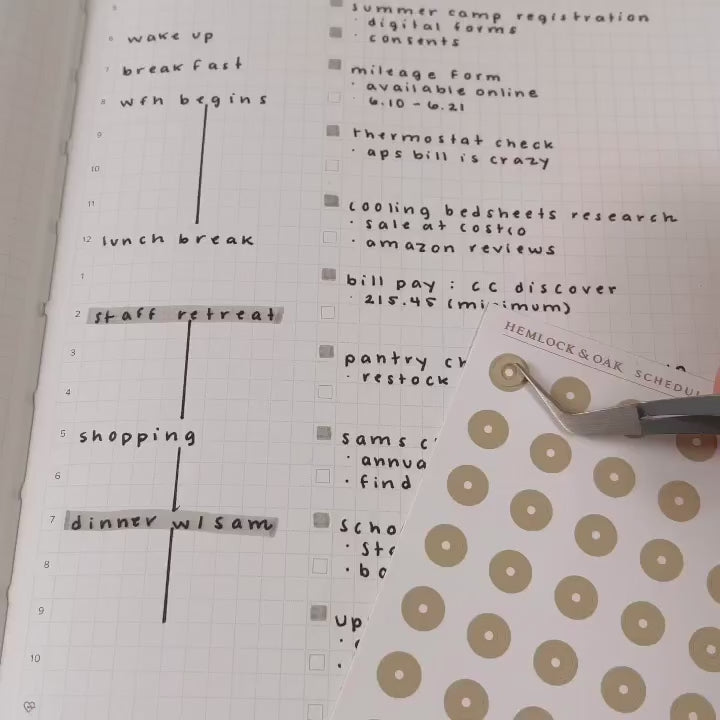 5
6 wake up
7 breakfast
8 wfh begins
9
10
11
12 lunch break
1
2 staff retreat
3
4
5 shopping
6
7 dinner w/ sam
8
9
10
summer camp registration
· digital forms
· consents
mileage form
· available online
· 6.10 - 6.21
thermostat check
· aps bill is crazy
cooling bedsheets research
· sale at costco
· amazon reviews
bill pay : cc discover
· 215.45 (minimum)
pantry
· restock
sams
· find
up
HEMLOCK & OAK